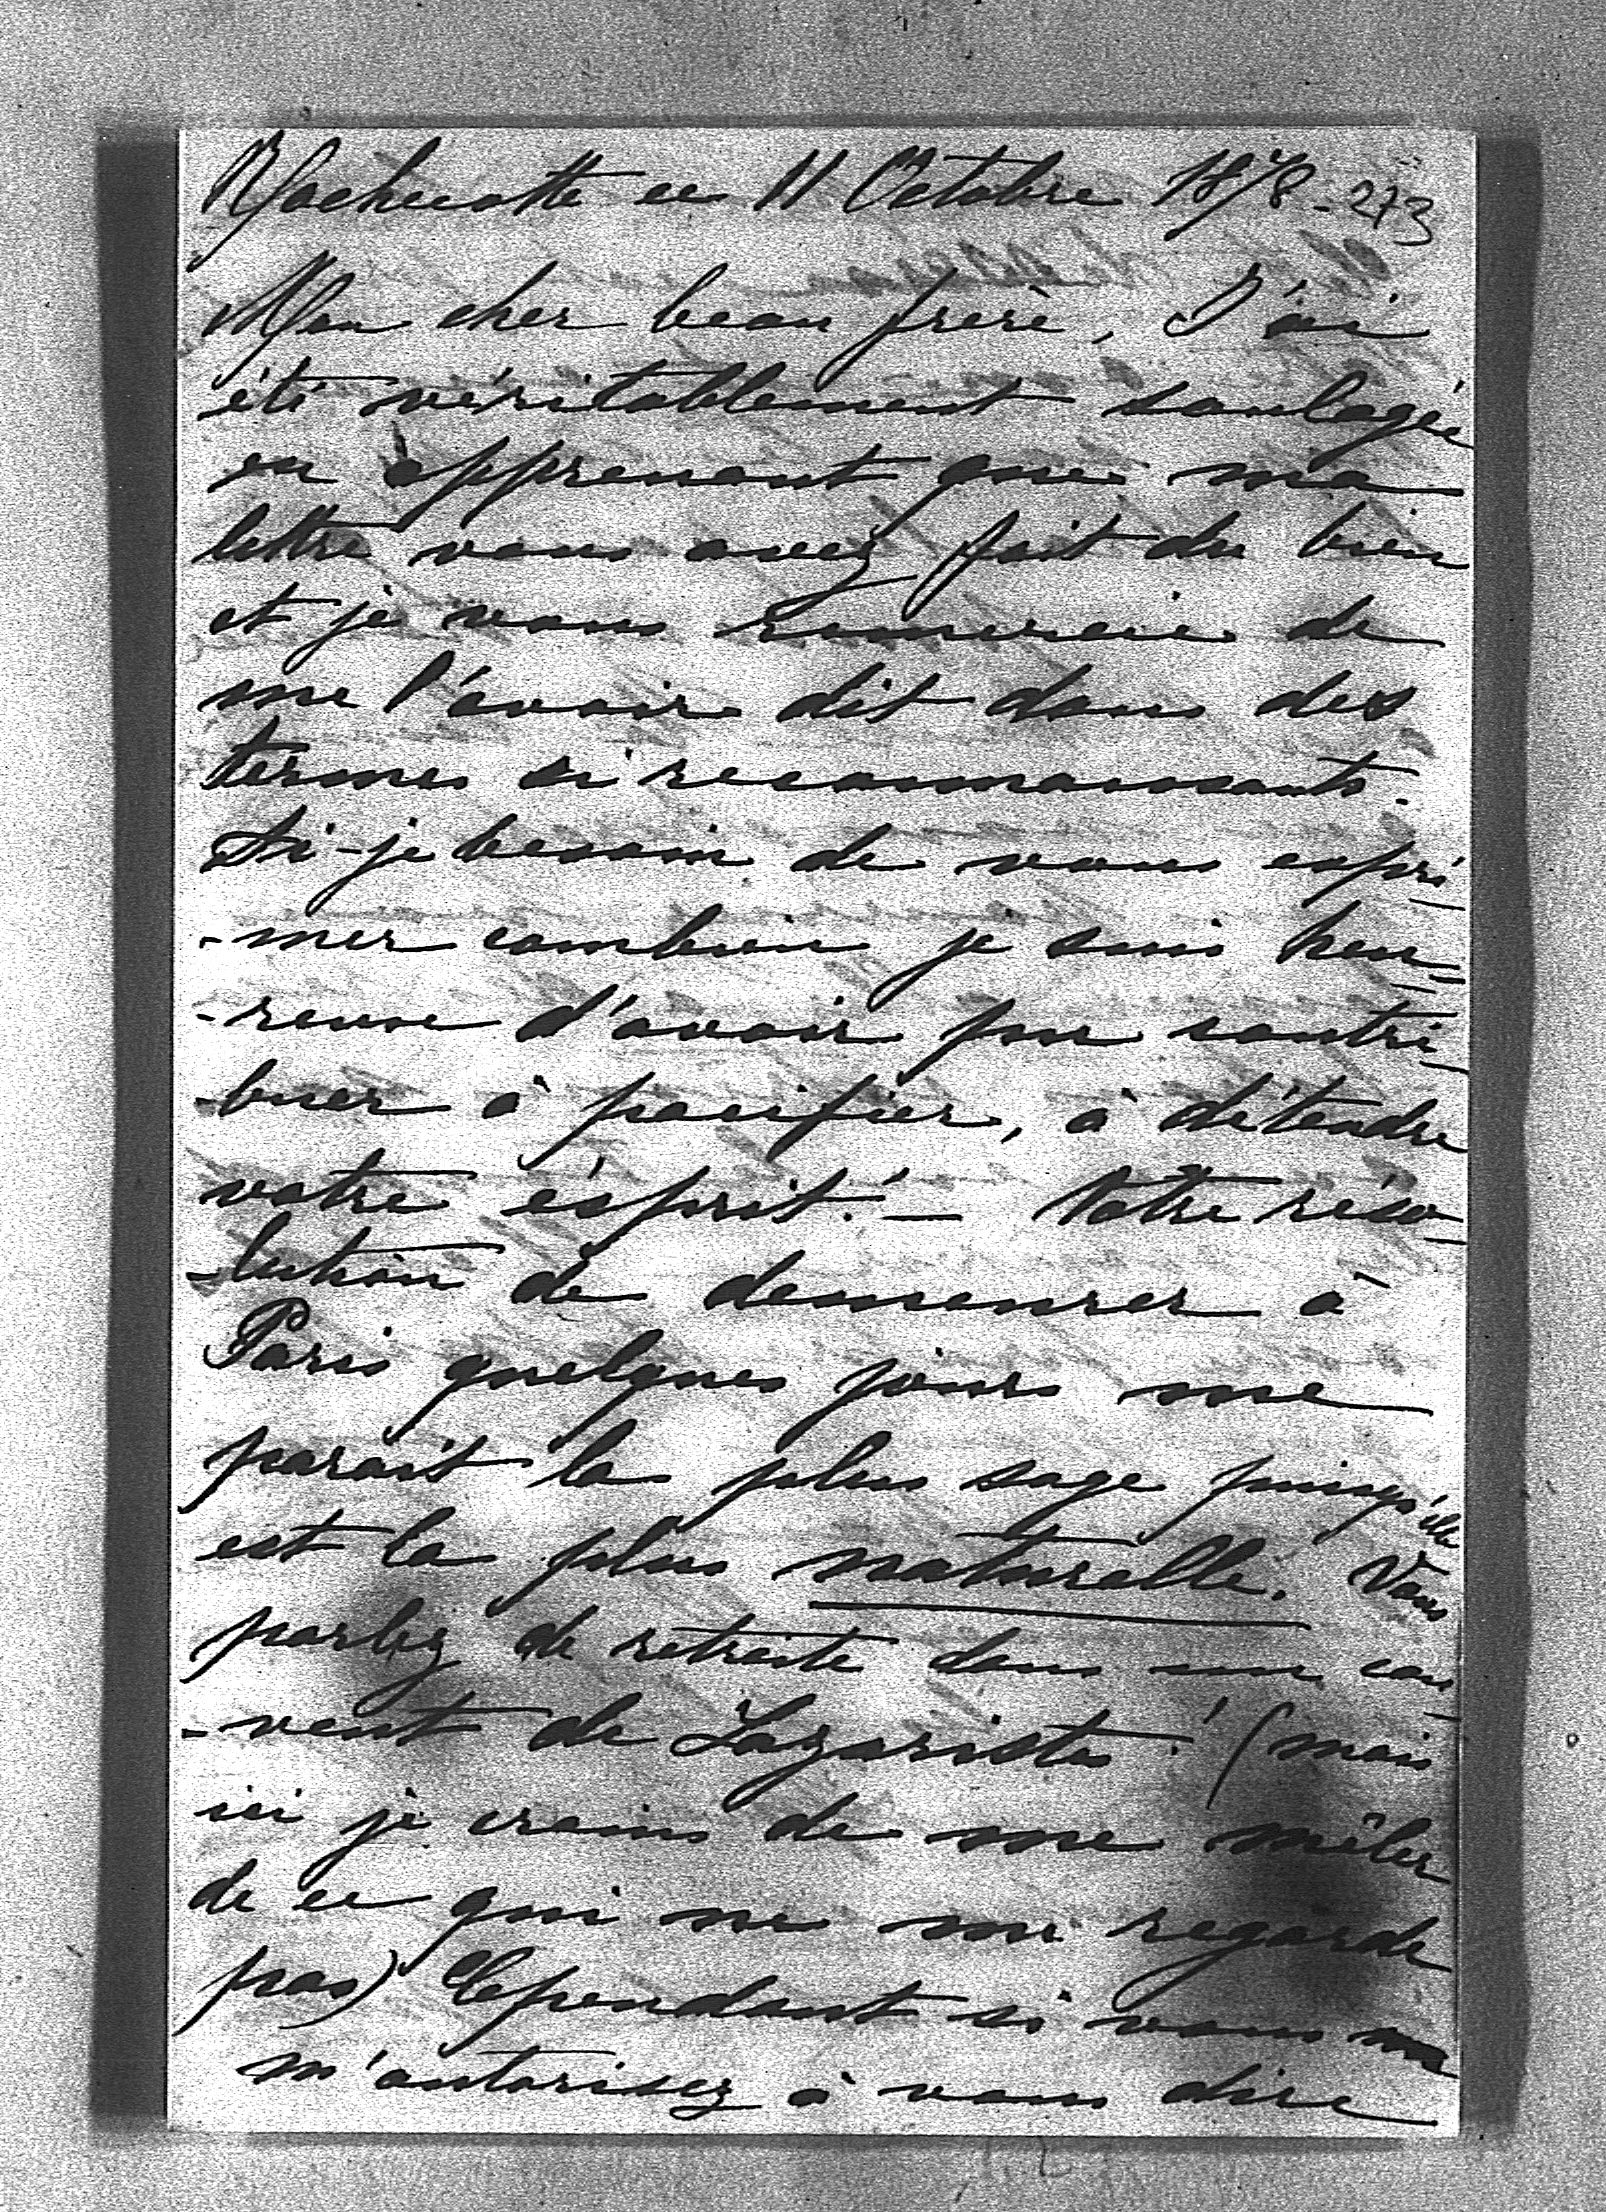 Rochecotte ce 11 Octobre 1878 - 273
Mon cher beau frère, J'ai
été véritablement soulagée
en apprenant que ma
lettre vous avez fait du bien
et je vous remercie de
me l'avoir dit dans des
termes si reconnaissants.
Ai-je besoin de vous expri-
-mer combien je suis heu-
-reuse d'avoir pu contri-
-buer à pacifier, à détendre
votre ésprit! — Votre réso-
-lution de demeurer à
Paris quelques jours me
parait la plus sage puisqu'elle
est la plus naturelle. Vous
parlez de retraite dans un cou-
-vent de Lazaristes! (mais
ici je crains de me mêler
de ce qui ne me regarde
pas) Cependant si vous
m'autorisez à vous dire